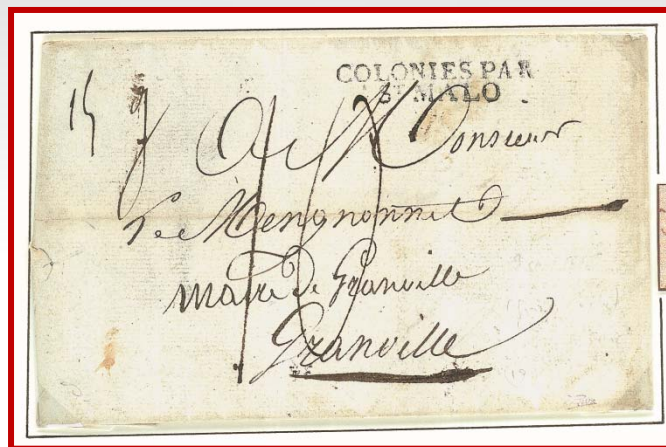 COLONIES PAR
St MALO
A Monsieur
Le Mengnonnet
Maire de Granville
Granville